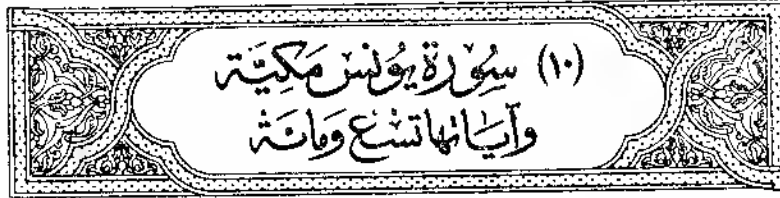 (١٠) سِوُرَة يُونسَ مَكِيَّة
وَآيَاتهَا تسْع وَمائة